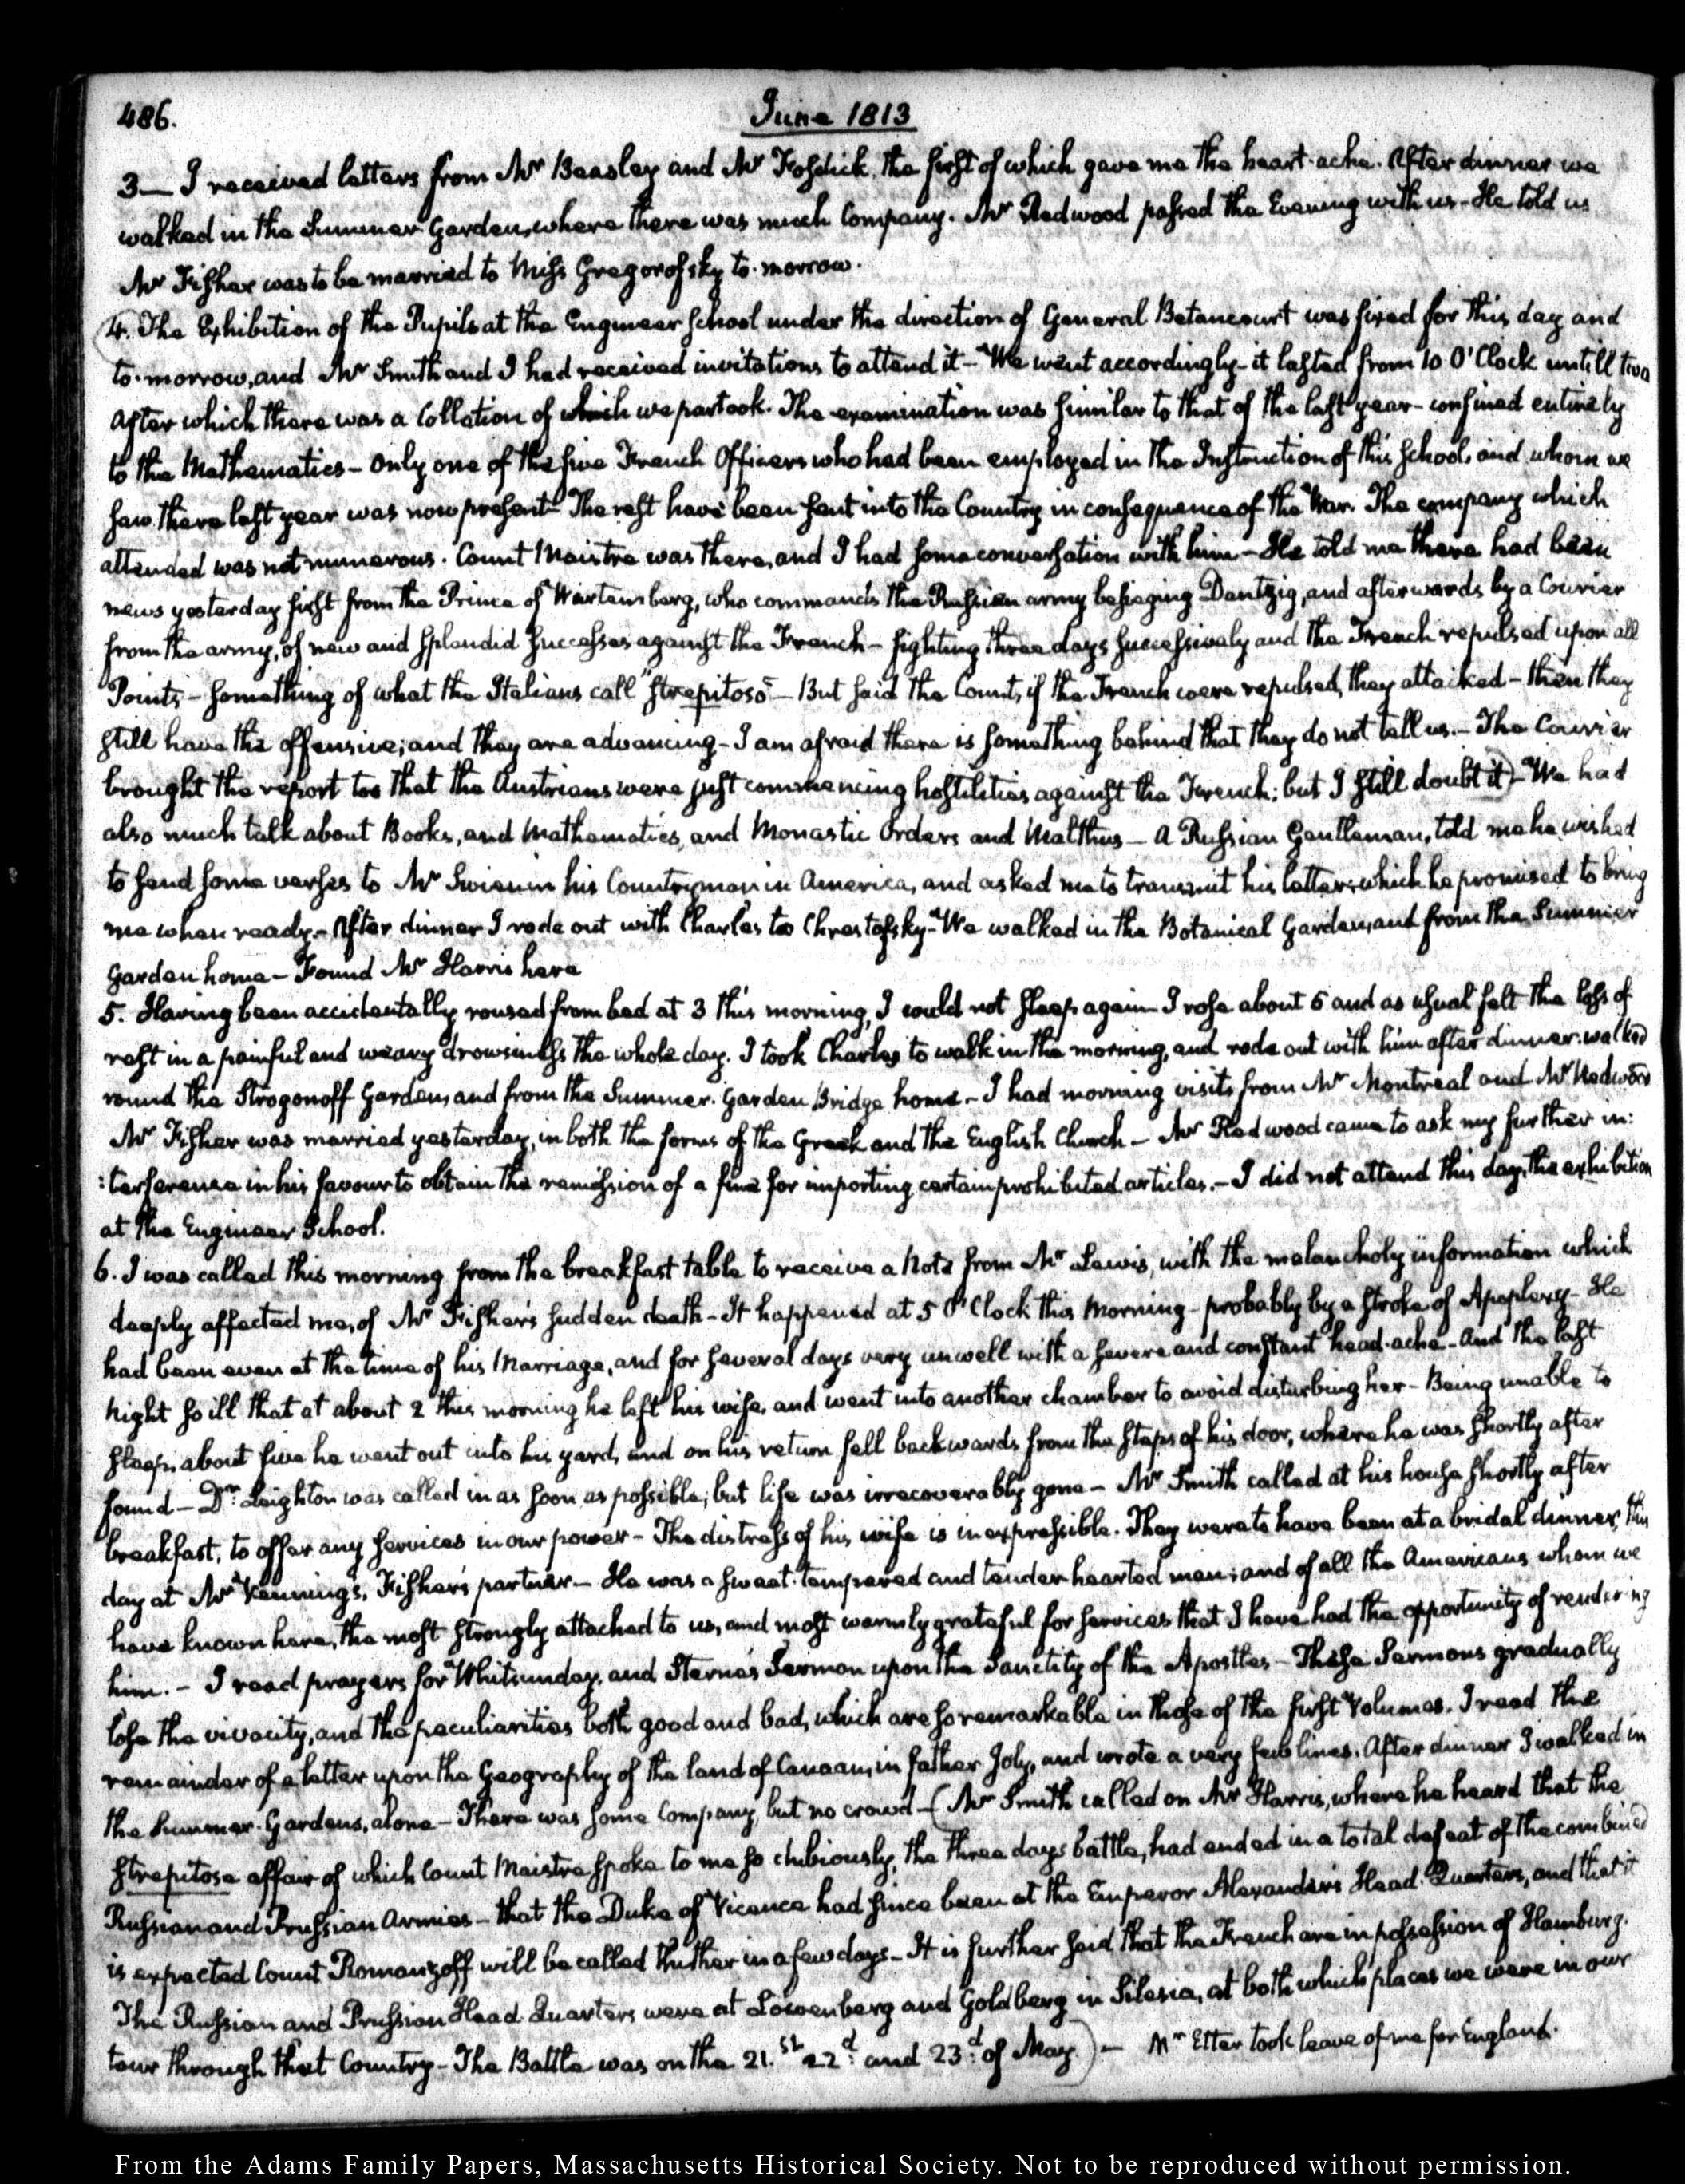 486.
June 1813
3— I received letters from Mr Beasley and Mr Fosdick, the first of which gave me the heart-ache. After dinner we
walked in the Summer Garden, where there was much Company. Mr Redwood passed the Evening with us – He told us
Mr Fisher was to be married to Miss Gregorofsky to-morrow.
4. The Exhibition of the Pupils at the Engineer School under the direction of General Betancourt was fixed for this day and
to-morrow, and Mr Smith and I had received invitations to attend it – We went accordingly – it lasted from 10 O'Clock untill two
after which there was a Collation of which we partook. The examination was similar to that of the last year – confined entirely
to the Mathematics – Only one of the five French Officers who had been employed in the Instruction of this School, and whom we
saw there last year was now present – The rest have been sent into the Country in consequence of the War. The company which
attended was not numerous. Count Maistre was there, and I had some conversation with him – He told me there had been
news yesterday first from the Prince of Wurtemberg, who commands the Russian army besieging Dantzig, and afterwards by a Courier
from the army, of new and splendid successes against the French – fighting three days successively and the French repulsed upon all
Points – something of what the Italians call "strepitoso" – But said the Count, if the French were repulsed, they attacked – then they
still have the offensive; and they are advancing – I am afraid there is something behind that they do not tell us. – The Courier
brought the report too that the Austrians were just commencing hostilities against the French; but I still doubt it) – We had
also much talk about Books, and Mathematics, and Monastic Orders and Malthus – A Russian Gentleman, told me he wished
to send some verses to Mr Swienin his Countryman in America, and asked me to transmit his letter, which he promised to bring
me when ready. – After dinner I rode out with Charles to Chrestofsky – We walked in the Botanical Garden, and from the Summer
Garden home – Found Mr Harris here
5. Having been accidentally roused from bed at 3 this morning, I could not sleep again – I rose about 5 and as usual felt the loss of
rest in a painful and weary drowsiness the whole day. I took Charles to walk in the morning, and rode out with him after dinner: walked
round the Strogonoff Gardens, and from the Summer-Garden Bridge home – I had morning visits from Mr Montreal and Mr Redwood
Mr Fisher was married yesterday, in both the forms of the Greek and the English Church – Mr Redwood came to ask my further in:
:terference in his favour to obtain the remission of a fine for importing certain prohibited articles. – I did not attend this day, the exhibition
at the Engineer School.
6. I was called this morning from the breakfast table to receive a Note from Mr Lewis, with the melancholy information which
deeply affected me, of Mr Fisher's sudden death – It happened at 5 O'Clock this Morning – probably by a stroke of Apoplexy – He
had been even at the time of his Marriage, and for several days very unwell with a severe and constant head-ache – And the last
night so ill that at about 2 this morning he left his wife, and went into another chamber to avoid disturbing her – Being unable to
sleep, about five he went out into his yard, and on his return fell backwards from the steps of his door, where he was shortly after
found – Dr: Leighton was called in as soon as possible; but life was irrecoverably gone – Mr Smith called at his house shortly after
breakfast, to offer any services in our power – The distress of his wife is inexpressible. They were to have been at a bridal dinner, this
day at Mr Venning's, Fisher's partner – He was a sweet-tempered and tender hearted man; and of all the Americans whom we
have known here, the most strongly attached to us, and most warmly grateful for services that I have had the opportunity of rendering
him. – I read prayers for Whitsunday, and Sterne's Sermon upon the Sanctity of the Apostles – These Sermons gradually
lose the vivacity, and the peculiarities both good and bad, which are so remarkable in those of the first Volumes. I read the
remainder of a letter upon the Geography of the land of Canaan, in father Joly, and wrote a very few lines. After dinner I walked in
the Summer-Gardens, alone – There was some Company, but no crowd – (Mr Smith called on Mr Harris, where he heard that the
strepitose affair of which Count Maistre spoke to me so dubiously, the three days battle, had ended in a total defeat of the combined
Russian and Prussian Armies – that the Duke of Vicence had since been at the Emperor Alexander's Head-Quarters, and that it
is expected Count Romanzoff will be called thither in a few days – It is further said that the French are in possession of Hamburg.
The Russian and Prussian Head-Quarters were at Löwenberg and Goldberg in Silesia, at both which places we were in our
tour through that Country – The Battle was on the 21.st 22d: and 23d: of May.) – Mr Etter took leave of me for England.
From the Adams Family Papers, Massachusetts Historical Society. Not to be reproduced without permission.